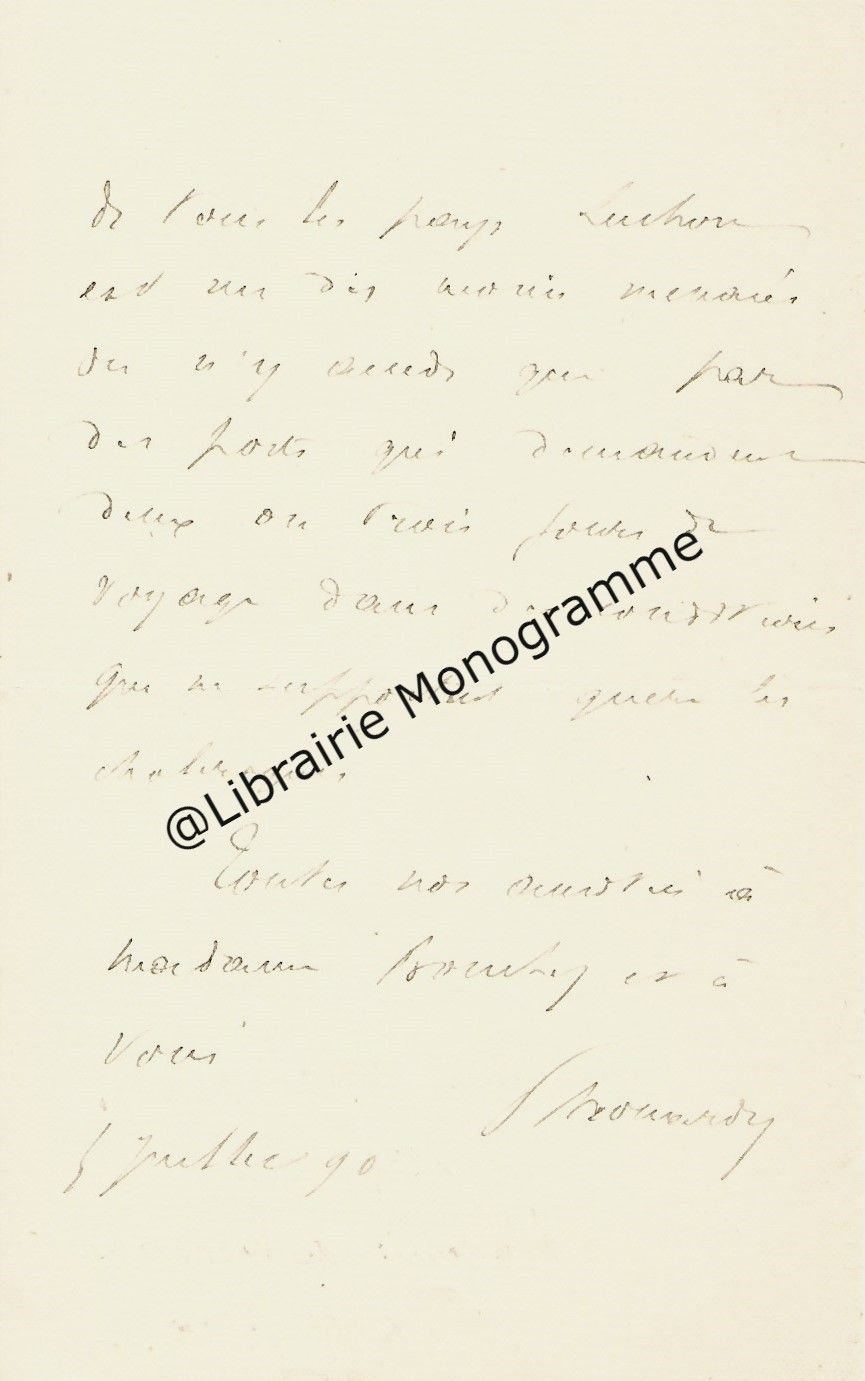 de tous les pays Luchon
est un des moins menacés
On n'y accède que par
des ports qui demandent
deux ou trois jours de
voyage dans des conditions
que ne supportent guère les
cholériques.
Toutes nos amitiés à
madame et à
vous
5 juillet 90
@Librairie Monogramme